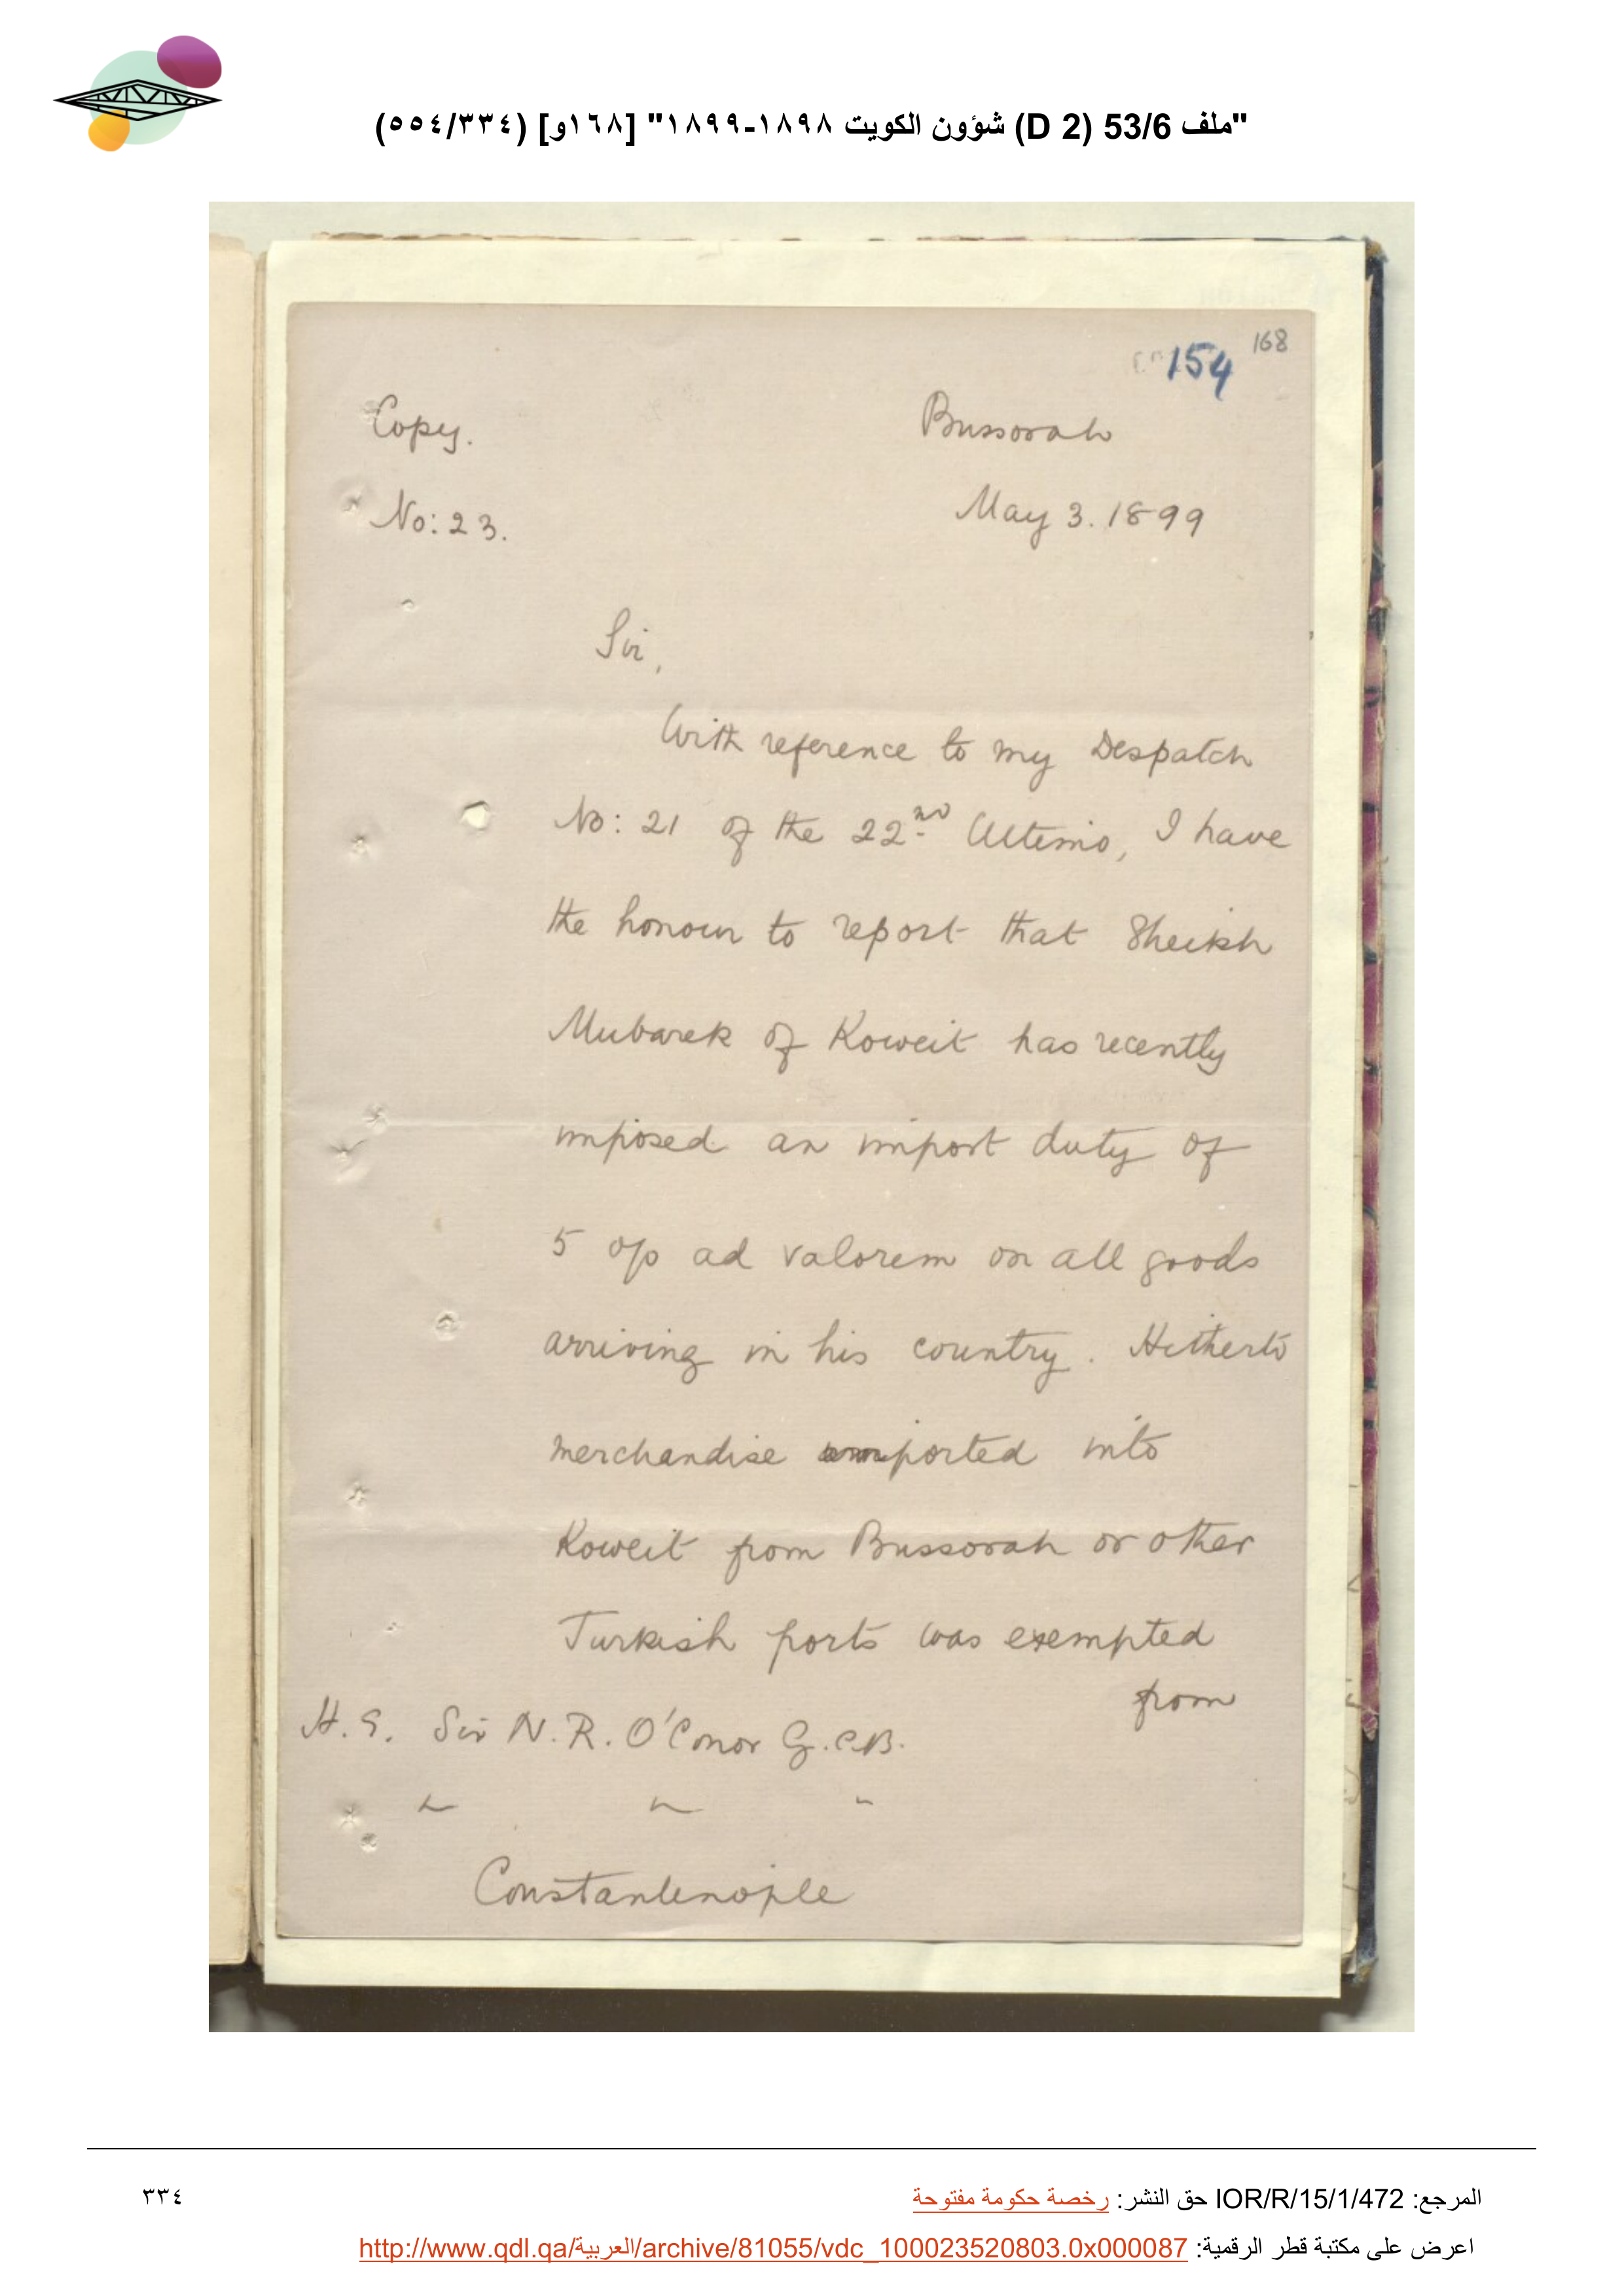 "ملف 53/6 (D 2) شؤون الكويت ١٨٩٨-١٨٩٩" [١٦٨و] (٥٥٤/٣٣٤)
154 168
Copy. Bussorah
No: 23. May 3. 1899
Sir,
With reference to my Despatch
No: 21 of the 22nd Ultimo, I have
the honour to report that Sheikh
Mubarek of Koweit has recently
imposed an import duty of
5 o/o ad valorem on all goods
arriving in his country. Hitherto
merchandise imported into
Koweit from Bussorah or other
Turkish ports was exempted
from
H. E. Sir N. R. O'Conor G.C.B.
" " "
Constantinople
المرجع: IOR/R/15/1/472 حق النشر: رخصة حكومة مفتوحة ٣٣٤
اعرض على مكتبة قطر الرقمية: http://www.qdl.qa/العربية/archive/81055/vdc_100023520803.0x000087